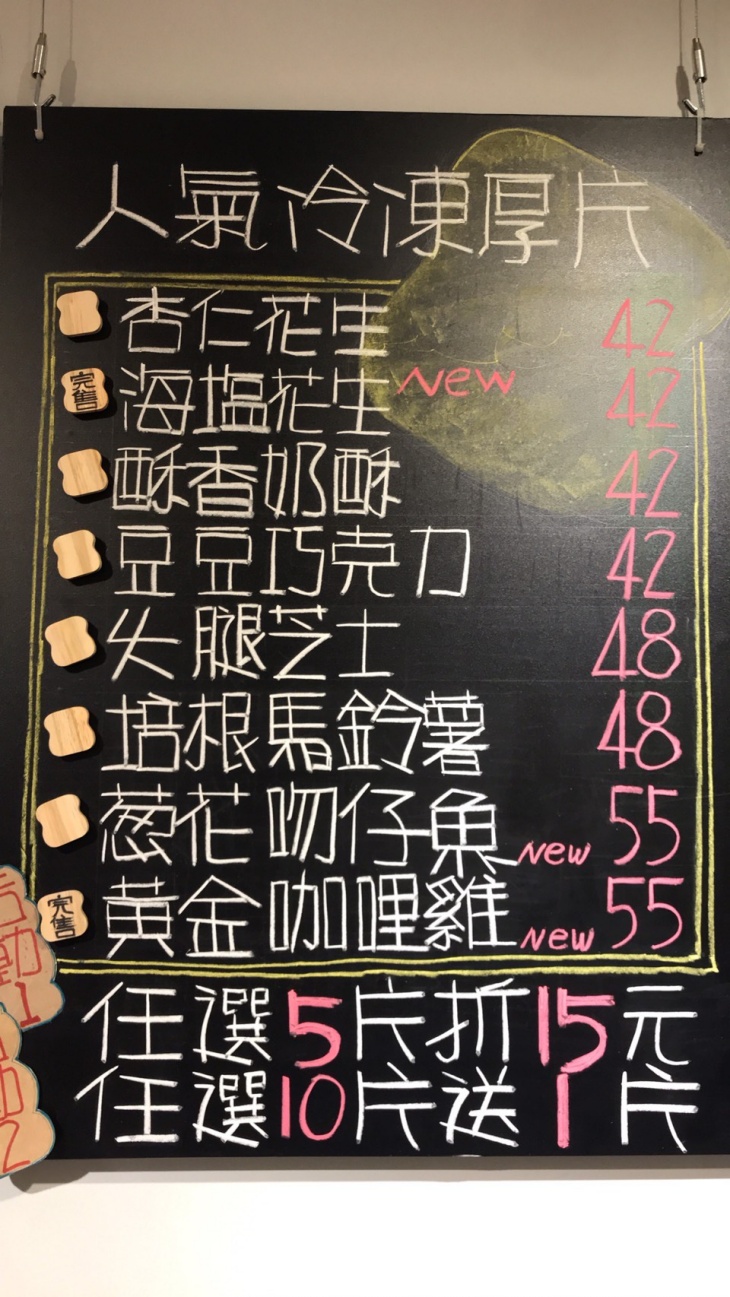 人氣冷凍厚片
杏仁花生 42
完售 海塩花生 New 42
酥香奶酥 42
豆豆巧克力 42
火腿芝士 48
培根馬鈴薯 48
葱花吻仔魚 New 55
完售 黃金咖哩雞 New 55
任選5片折15元
任選10片送1片
動1
2